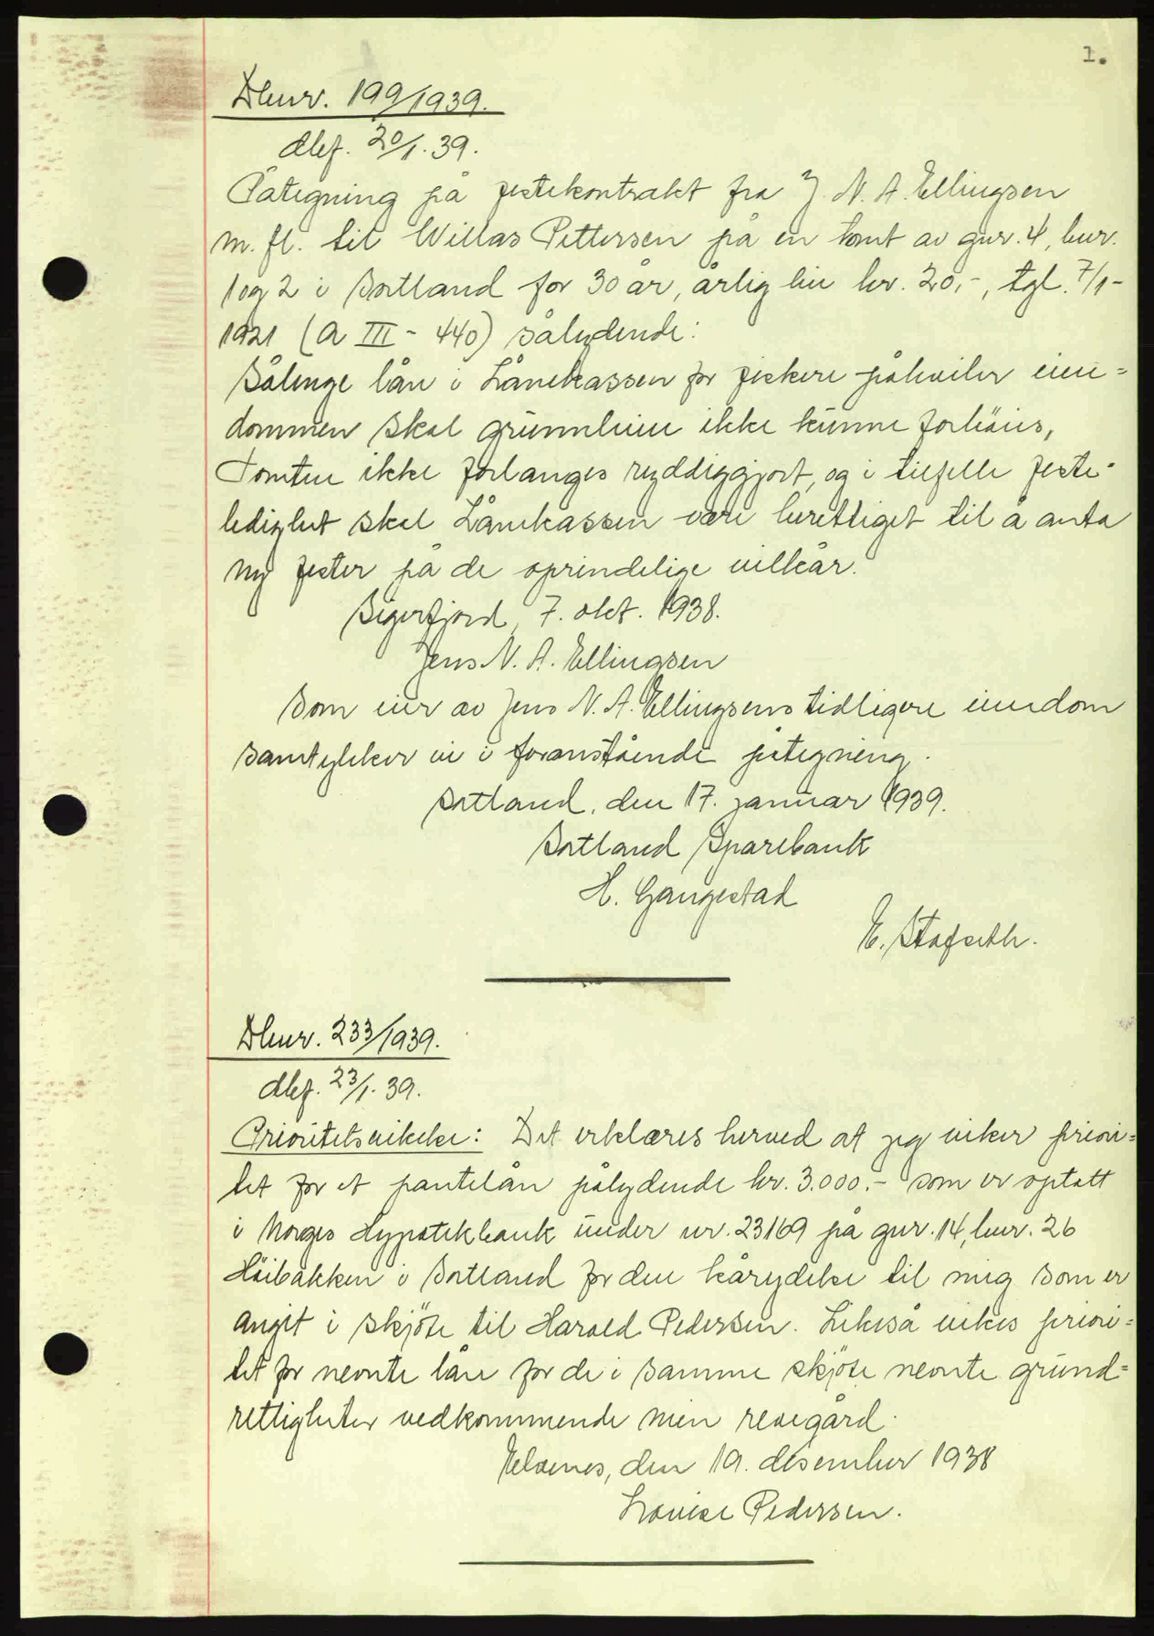 1.
Dbnr. 199/1939.
dbf. 20/1. 39.
Påtegning på festekontrakt fra J. N. A. Ellingsen
m. fl. til Willas Pettersen på en tomt av gnr. 4, bnr.
1 og 2 i Sortland for 30 år, årlig leie kr. 20,-, tgl. 7/1-
1921 (A III - 440) sålydende:
Sålenge lån i Lånekassen for fiskere påhviler eien=
dommen skal grunnleien ikke kunne forhöies,
Tomten ikke forlanges ryddiggjort, og i tilfelle feste-
ledighet skal Lånekassen være berettiget til å anta
ny fester på de oprindelige vilkår.
Sigerfjord, 7. okt. 1938.
Jens N. A. Ellingsen
Som eier av Jens N. A. Ellingsens tidligere eiendom
samtykker vi i foranstående påtegning.
Sortland, den 17. januar 1939.
Sortland Sparebank
H. Gangestad
E. Stafseth.
Dbnr. 233/1939.
dbf. 23/1. 39.
Prioritetsvikelse: Det erklæres herved at jeg viker priori=
tet for et pantelån pålydende kr. 3.000.- som er optatt
i Norges Hypotekbank under nr. 23169 på gnr. 14, bnr. 26
Höibakken i Sortland for den kårydelse til mig som er
angit i skjöte til Harald Pedersen. Likeså vikes priori=
tet for nevnte lån for de i samme skjöte nevnte grund=
rettigheter vedkommende min revegård.
Elvenes, den 19. desember 1938
Lovise Pedersen.